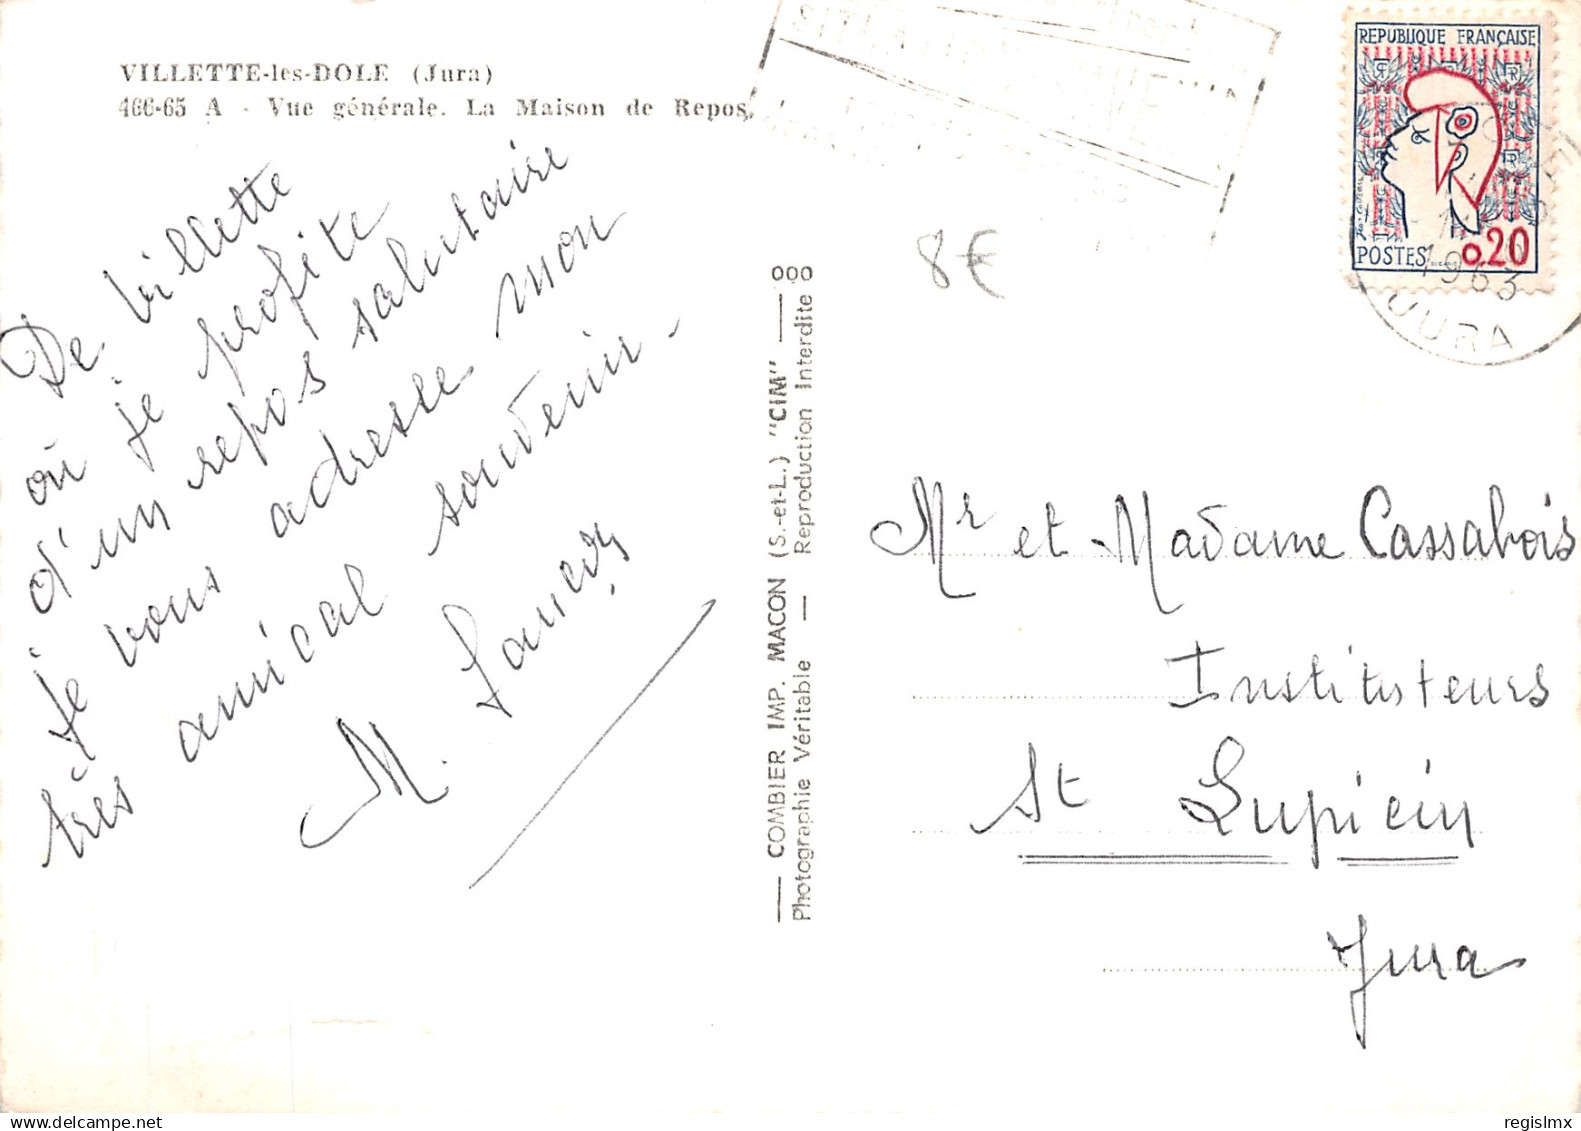 VILLETTE-les-DOLE (Jura)
466-65 A - Vue générale. La Maison de Repos.
De Villette
où je profite
d'un repos salutaire
je vous adresse mon
très amical souvenir.
M.
— COMBIER IMP. MACON (S.-et-L.) "CIM" — 000
Photographie Véritable — Reproduction Interdite
8€
REPUBLIQUE FRANÇAISE
POSTES 0,20
1963
JURA
Mr et Madame Cassabois
Instituteurs
St Lupicin
Jura
regislmx